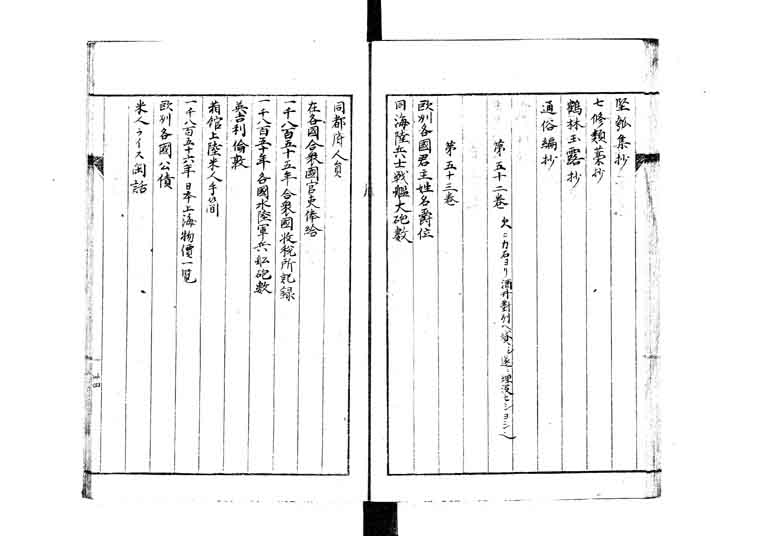 堅瓠集抄
七修類藁抄
鶴林玉露抄
通俗編抄
第五十二巻
第五十三巻
欧列各國君主姓名爵位
同海陸兵士戦艦大砲数
同都府人員
在各國合衆國官吏俸給
一千八百五十五年合衆國收税所記録
一千八百五十年各國水陸軍兵船砲数
英吉利倫敦
箱館上陸米人手簡
一千八百五十六年日本上海物價一覧
欧列各國公債
米人ライス閑話